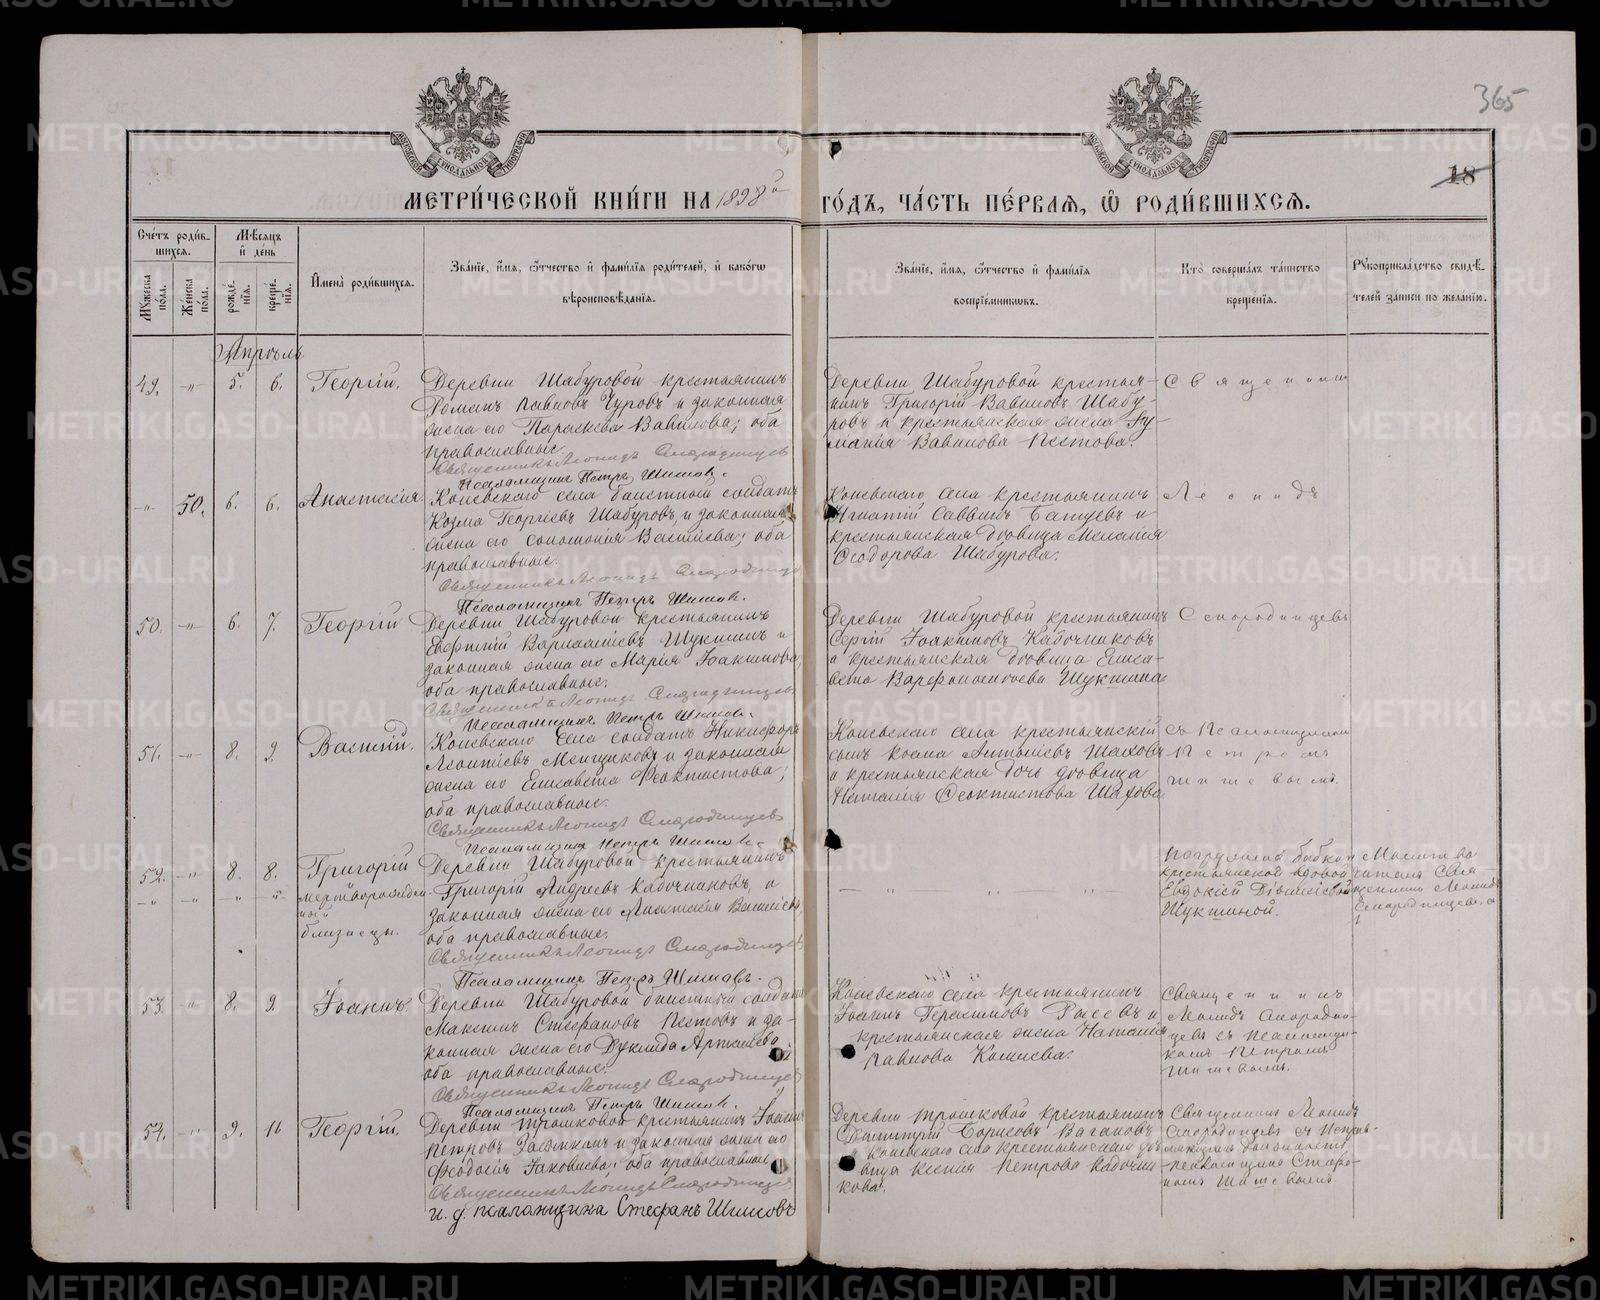 365
18
МЕТРИ́ЧЕСКОЙ КНИ́ГИ НА 1898й ГО́ДЪ, ЧА́СТЬ ПЕ́РВАЯ, Ѡ РОДИ́ВШИХСЯ.
Сче́тъ роди́в-
шихся.
Мѣ́сяцъ
и҆ де́нь
Мꙋ́жеска по́ла.
Же́нска по́ла.
рожде́-
нїѧ.
креще́-
нїѧ.
И҆мена̀ роди́вшихсѧ.
Зва́нїе, и҆́мѧ, ѻ҆́тчество и҆ фами́лїѧ роди́телей, и҆ како́гѡ
вѣроисповѣ́данїѧ.
Зва́нїе, и҆́мѧ, ѻ҆́тчество и҆ фами́лїѧ
воспрїе́мникѡвъ.
Кто̀ соверша́лъ та́инство
креще́нїѧ.
Рꙋкоприкла́дство свидѣ́-
телей за́писи по жела́нїю.
Апрѣль
49. -„- 5. 6. Георгій.
Деревни Шабуровой крестьянинъ
Романъ Павловъ Чуровъ и законная
жена его Параскева Вавилова; оба
православные.
Священникъ Леонидъ Смородинцевъ
Псаломщикъ Петръ Шишовъ.
Деревни Шабуровой крестья-
нинъ Григорій Вавиловъ Шабу-
ровъ и крестьянская жена
Вавилова Пестова.
Священник
-„- 50. 6. 6. Анастасія.
Коневскаго села билетный солдатъ
Козма Георгіевъ Шабуровъ, и законная
жена его Соломонія Василіева; оба
православные.
Священникъ Леонидъ Смородинцевъ
Псаломщикъ Петръ Шишовъ.
Коневскаго села крестьянинъ
Игнатій Саввинъ и
крестьянская вдовица Меланія
Ѳеодорова Шабурова.
Леонидъ
50. -„- 6. 7. Георгій
Деревни Шабуровой крестьянинъ
Евфимій Шукшинъ и
законная жена его Марія Іоакимова,
оба православные.
Священникъ Леонидъ Смородинцевъ
Псаломщикъ Петръ Шишовъ.
Деревни Шабуровой крестьянинъ
Сергій Іоакимовъ Кабочниковъ
и крестьянская вдовица Елиса-
вета Варфоломеева Шукшина
Смородинцевъ
51. -„- 8. 9. Василій.
Коневскаго села солдатъ Никифоръ
Леонтіевъ Меншиковъ и законная
жена его Елисавета Ѳеоктистова;
оба православные.
Священникъ Леонидъ Смородинцевъ
Псаломщикъ Петръ Шишовъ.
Коневскаго села крестьянскій
сынъ Косма Шаховъ
и крестьянская дочь вдовица
Наталія Ѳеоктистова Шахова
съ Псаломщикомъ
Петромъ
Шишовымъ.
52. -„- 8. 8. Григорій
мертворожден-
ный
близнецы.
Деревни Шабуровой крестьянинъ
Григорій Андреевъ Кабочниковъ, и
законная жена его Анастасія Василіева,
оба православные.
Священникъ Леонидъ Смородинцевъ
Псаломщикъ Петръ Шишовъ.
Погружалъ бабкой
крестьянской вдовой
Евдокіей Діонисіевой
Шукшиной.
Молитва
читалъ Свя-
щенникъ Леонидъ
Смородинцевъ.
53. -„- 8. 9. Іоаннъ.
Деревни Шабуровой билетный солдатъ
Максимъ Стефановъ Пестовъ и за-
конная жена его
оба православные.
Священникъ Леонидъ Смородинцевъ
Псаломщикъ Петръ Шишовъ.
Коневскаго села крестьянинъ
Іоаннъ Герасимовъ и
крестьянская жена Наталія
Павлова
Священникъ
Леонидъ Смородин-
цевъ съ Псаломщи-
комъ Петромъ
Шишовымъ.
54. -„- 9. 11 Георгій.
Деревни Трошковой крестьянинъ Іоаннъ
Петровъ и законная жена его
Ѳеодосія Іаковлева; оба православные
Священникъ Леонидъ Смородинцевъ
и. д. псаломщика Стефанъ Шишовъ
Деревни Трошковой крестьянинъ
Димитрій Борисовъ Вагановъ
и Коневскаго села крестьянская дѣ-
вица Ксенія Петрова Кабочни-
кова.
Священникъ Леонидъ
Смородинцевъ съ
псаломщика Стефа-
номъ Шишовымъ.
METRIKI.GASO-URAL.RU